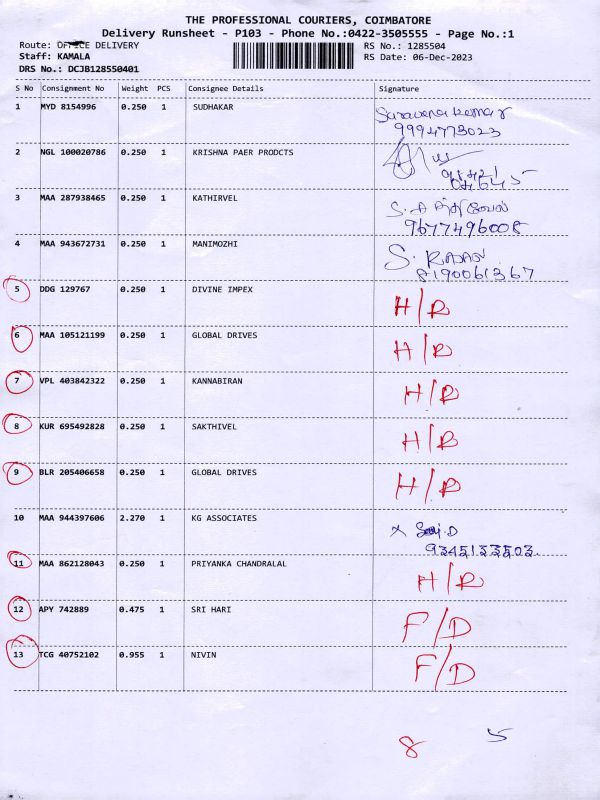 THE PROFESSIONAL COURIERS, COIMBATORE
Delivery Runsheet - P103 - Phone No.:0422-3505555 - Page No.:1
Route: OFFICE DELIVERY RS No.: 1285504
Staff: KAMALA RS Date: 06-Dec-2023
DRS No.: DCJB128550401
S No Consignment No Weight PCS Consignee Details Signature
1 MYD 8154996 0.250 1 SUDHAKAR Saravana kumar
9994773023
2 NGL 100020786 0.250 1 KRISHNA PAER PRODCTS
3 MAA 287938465 0.250 1 KATHIRVEL S.
9677496008
4 MAA 943672731 0.250 1 MANIMOZHI S. RAJAN
8190061367
5 DDG 129767 0.250 1 DIVINE IMPEX H/R
6 MAA 105121199 0.250 1 GLOBAL DRIVES H/R
7 VPL 403842322 0.250 1 KANNABIRAN H/R
8 KUR 695492828 0.250 1 SAKTHIVEL H/R
9 BLR 205406658 0.250 1 GLOBAL DRIVES H/R
10 MAA 944397606 2.270 1 KG ASSOCIATES
9345133503
11 MAA 862128043 0.250 1 PRIYANKA CHANDRALAL H/R
12 APY 742889 0.475 1 SRI HARI F/D
13 TCG 40752102 0.955 1 NIVIN F/D
8 5